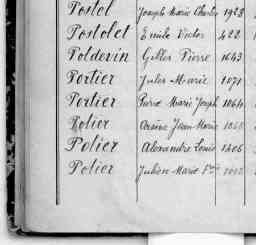 Postol Joseph Marie Charles 1923
Postolet Emile Victor 422
Poldevin Gilles Pierre 1643
Portier Jules Marie 1071
Portier Pierre Marie Joseph 1064
Polier Jean Marie
Polier Alexandre Louis 1606
Polier Julien Marie